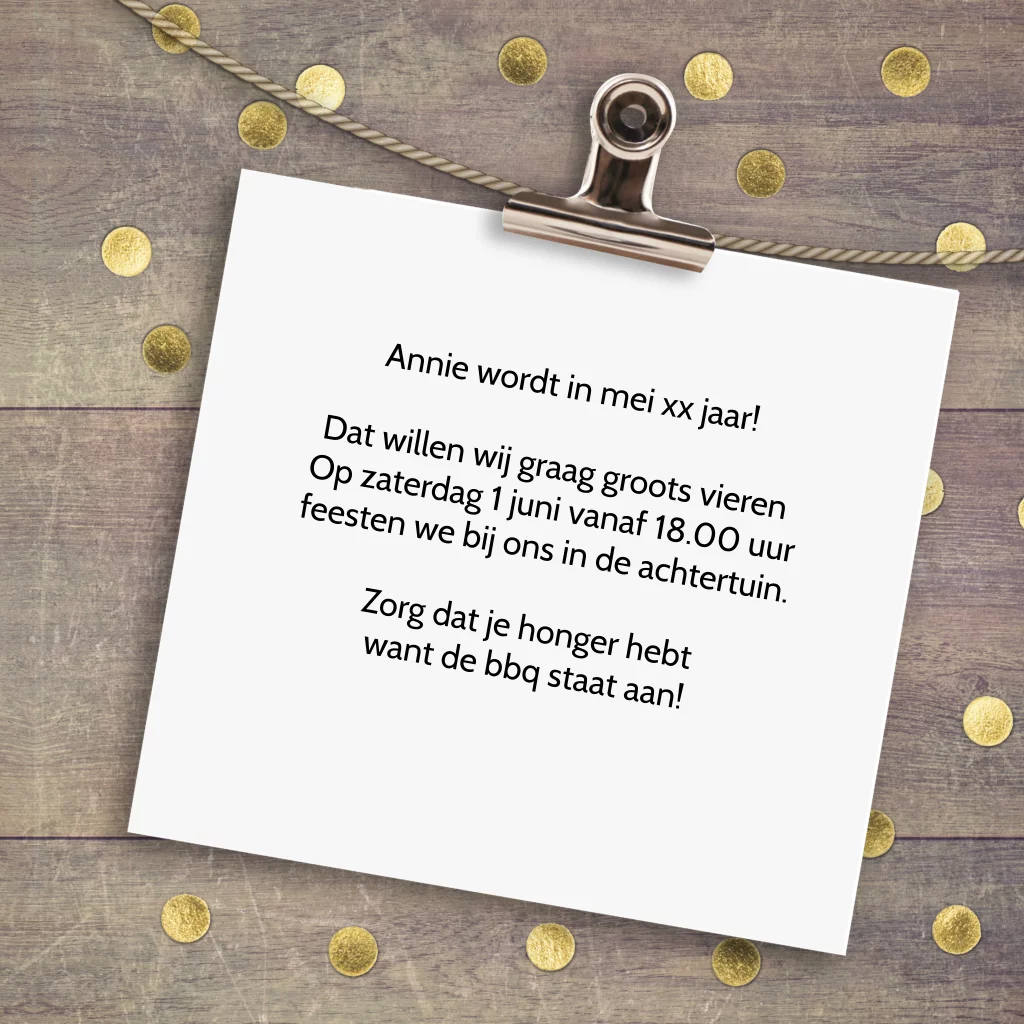 Annie wordt in mei xx jaar!
Dat willen wij graag groots vieren
Op zaterdag 1 juni vanaf 18.00 uur
feesten we bij ons in de achtertuin.
Zorg dat je honger hebt
want de bbq staat aan!